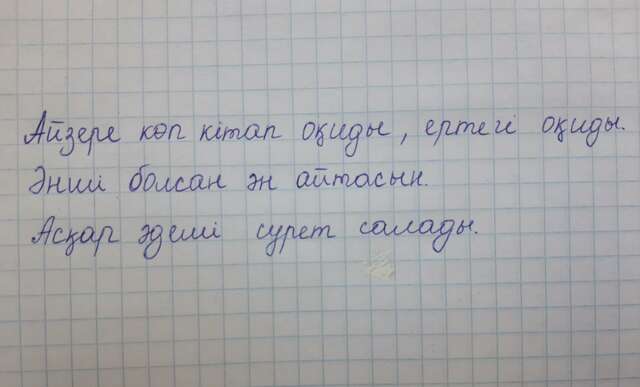 Айзере көп кітап оқиды, ертегі оқиды.
Әнші болсан ән айтасын.
Асқар әдемі сурет салады.